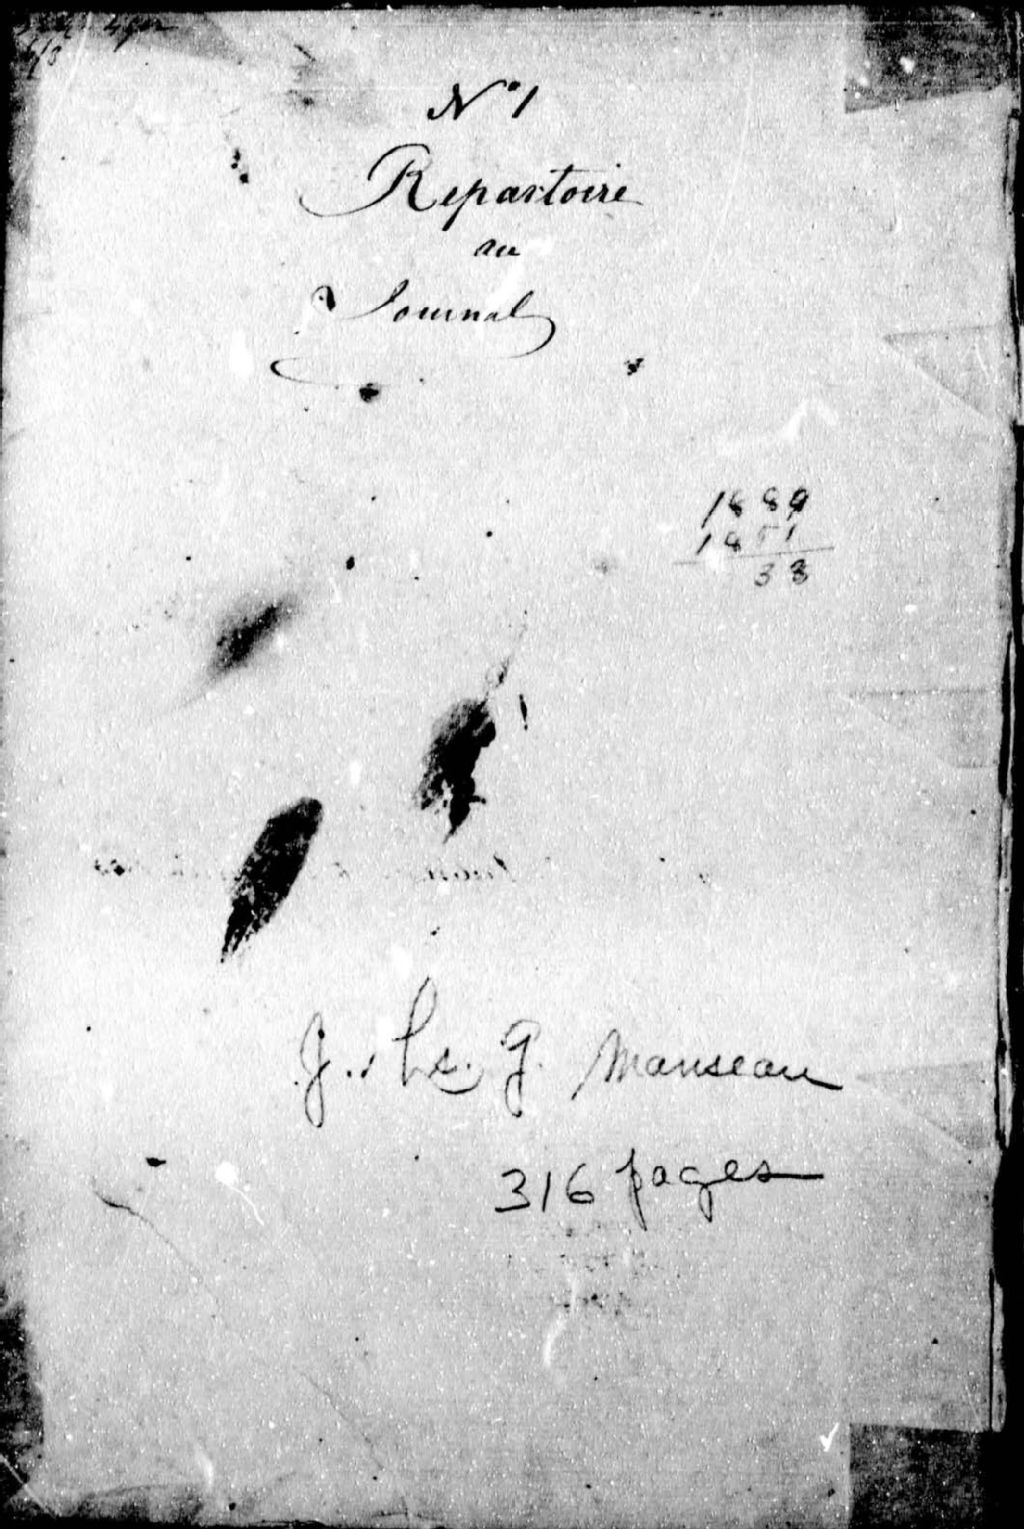 N° 1
Repartoire
au
Journal
1889
1851
38
J. Bs. G. Manseau
316 pages